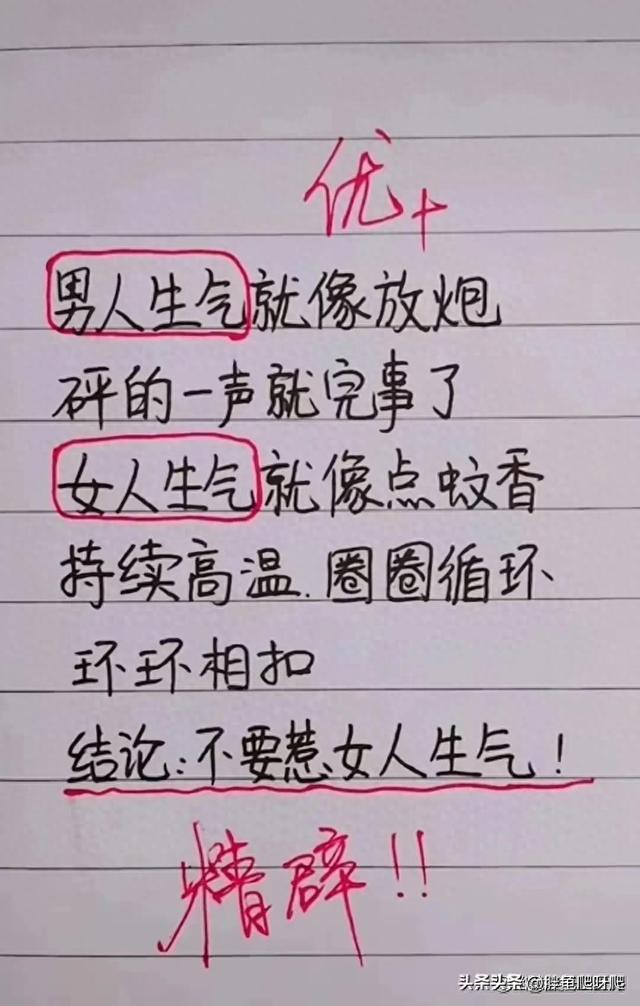 优+
男人生气就像放炮
砰的一声就完事了
女人生气就像点蚊香
持续高温.圈圈循环
环环相扣
结论:不要惹女人生气!
精辟!!
头条头条@胖鱼爬呀爬